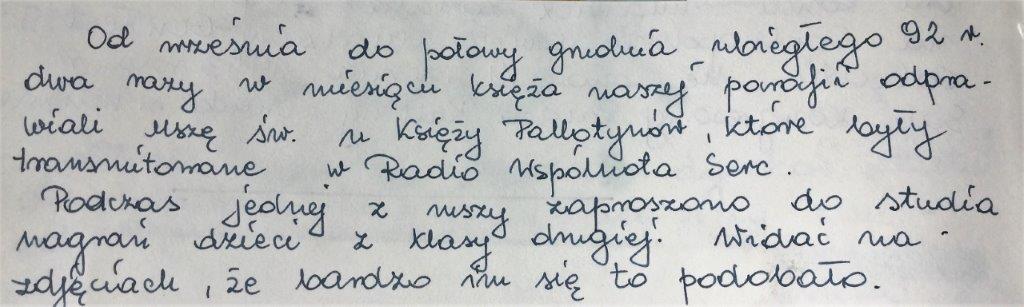 Od września do połowy grudnia ubiegłego 92 r.
dwa razy w miesiącu księża naszej parafii odpra-
wiali Mszę św. u Księży Pallotynów, które były
transmitowane w Radio Wspólnota Serc.
Podczas jednej z mszy zaproszono do studia
nagrań dzieci z klasy drugiej. Widać na
zdjęciach, że bardzo im się to podobało.